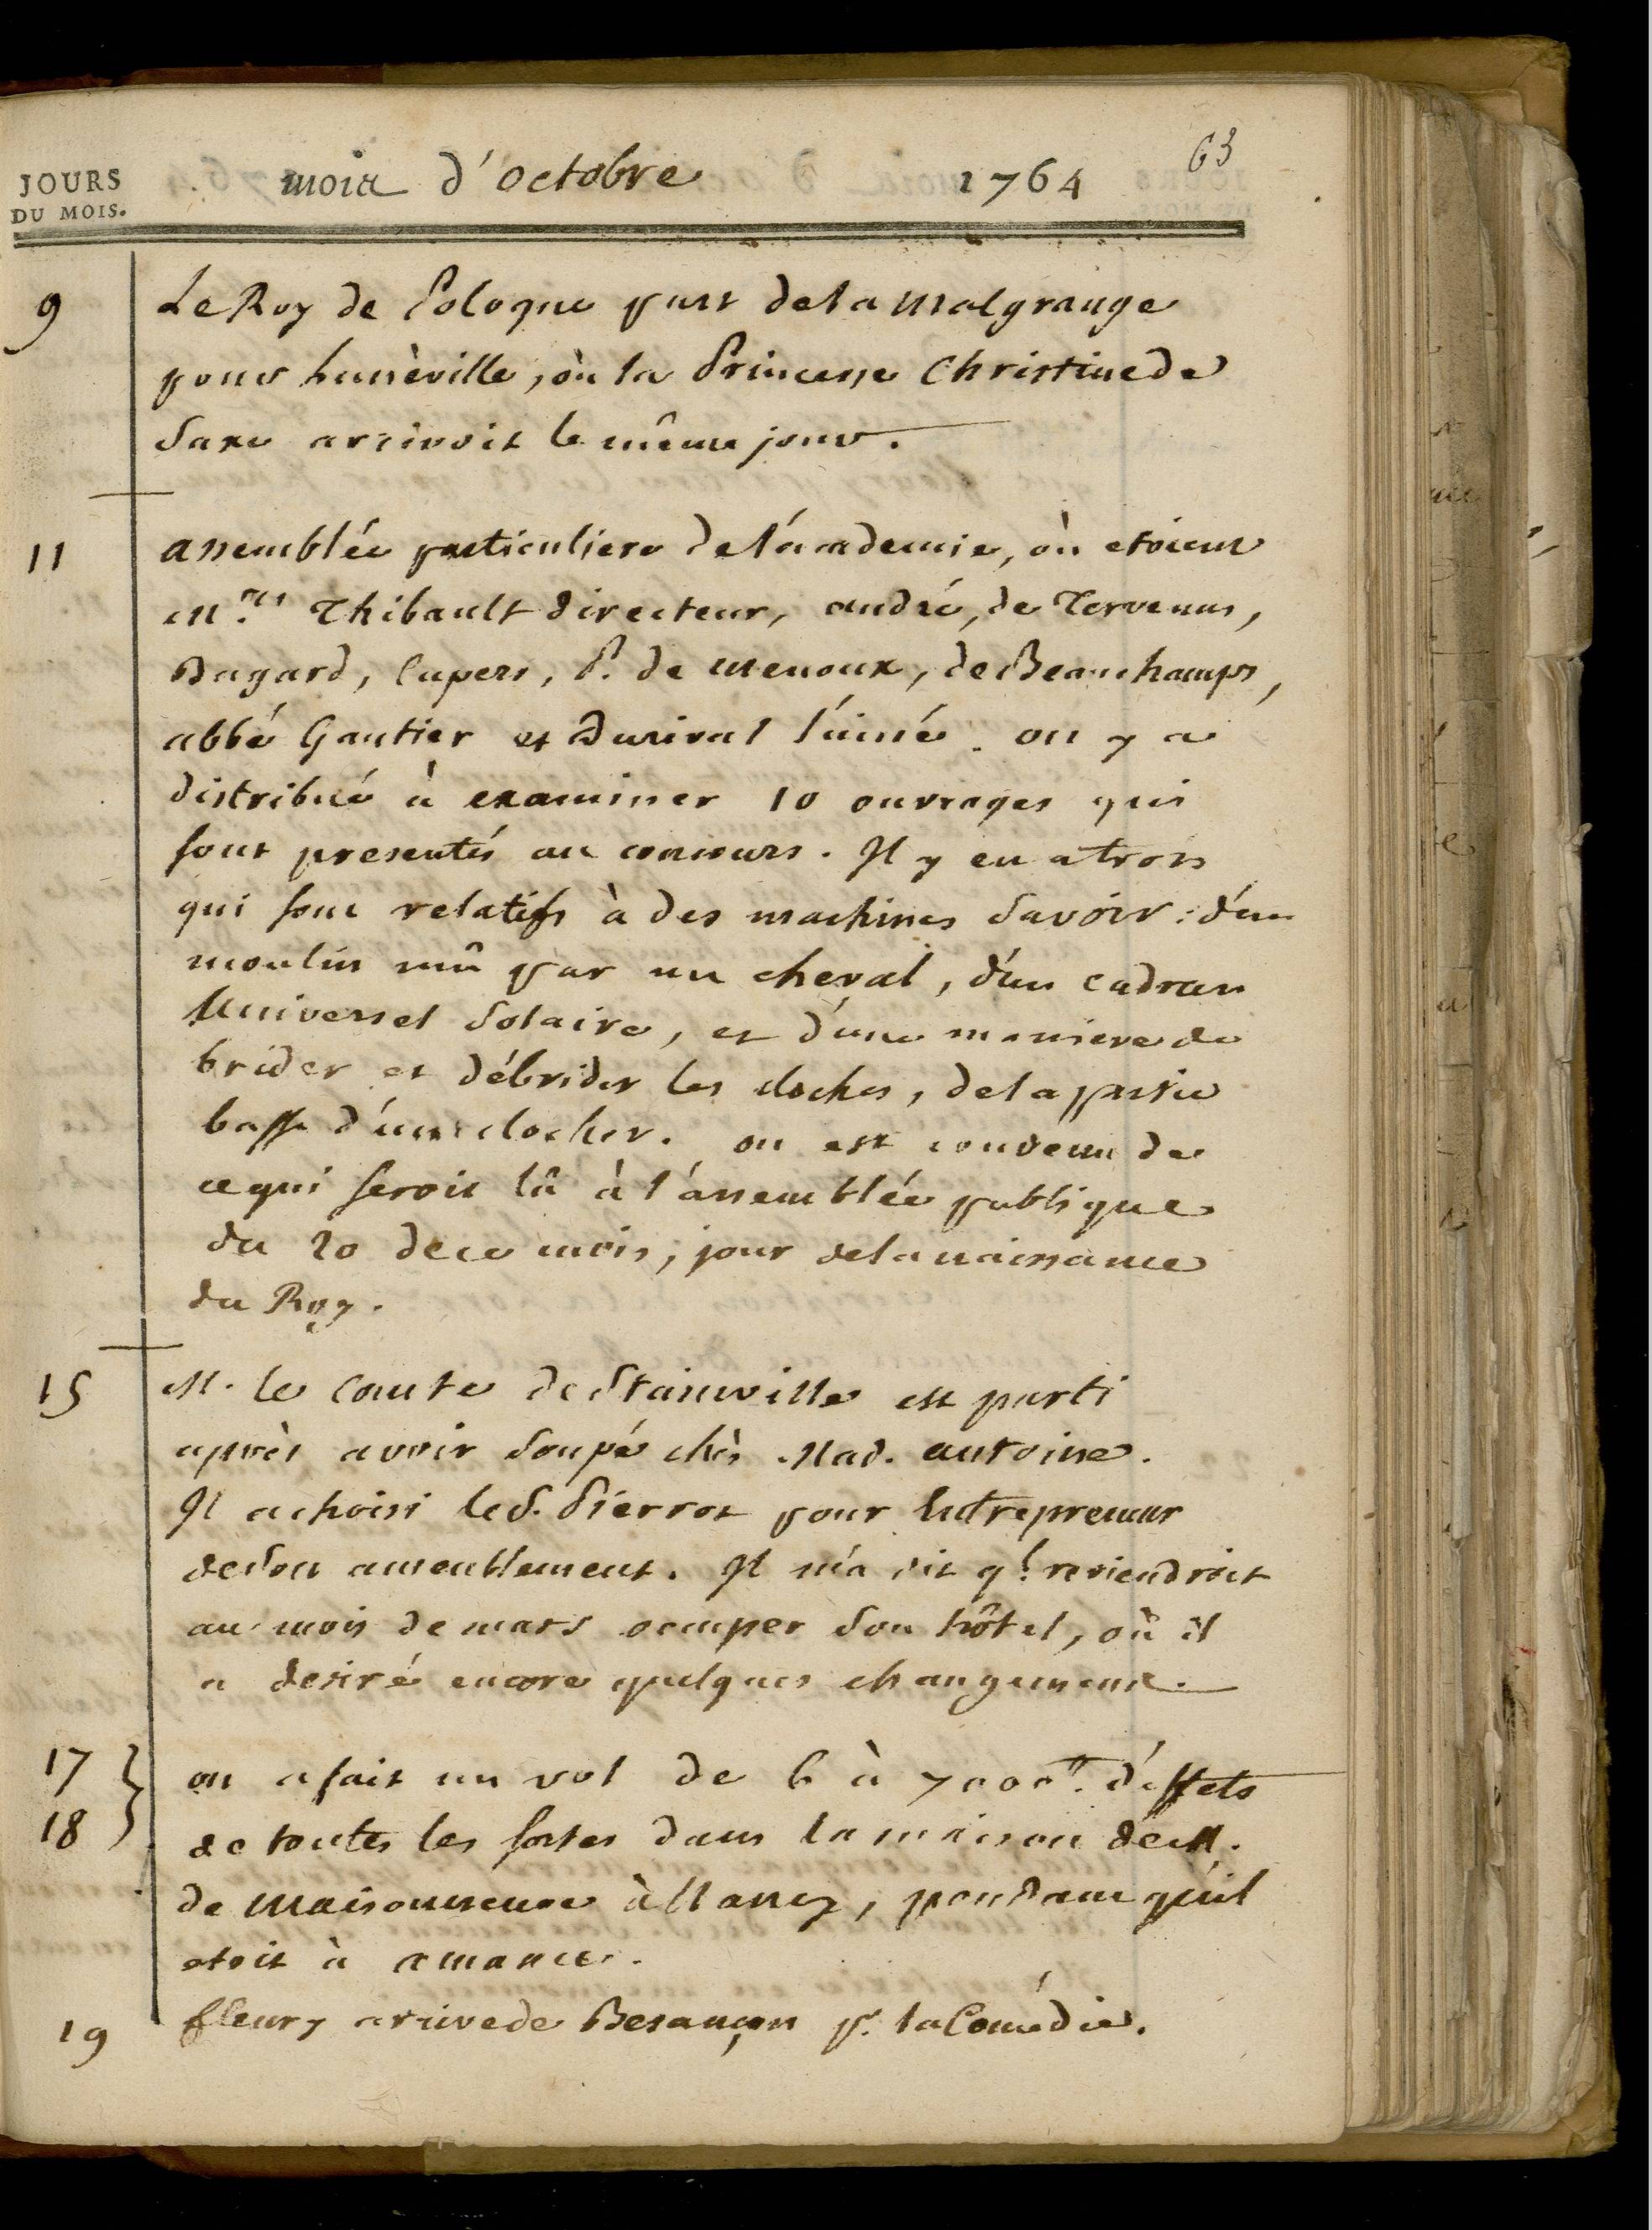 63
JOURS
DU MOIS.
mois d'octobre 1764
9 Le Roy de Pologne part de la Malgrange
pour Lunèville, où la Princesse Christine de
Saxe arrivoit le même jour.
11 assemblée particuliere de l'académie, où etoient
Mrs. Thibault directeur, andré, de Tervenus,
Bagard, Cupers, P. de Menoux, de Beauchamps,
abbé Gautier et Durival l'ainé. on y a
distribué à examiner 10 ouvrages qui
sont presentés au concours. Il y en a trois
qui sont relatifs à des machines Savoir : d'un
moulin mû par un cheval, d'un cadran
Universel Solaire, et d'une maniere de
brider et débrider les cloches, de la partie
basse d'un clocher. on est convenu de
ce qui seroit lû à l'assemblée publique
du 20 de ce mois, jour de la naissance
du Roy.
15 M. le Comte de Stainville est parti
après avoir Soupé chès Mad. antoine.
Il a choisi le S. Pierrot pour Entrepreneur
de Son ameublement. Il m'a dit ql. reviendroit
au mois de mars occuper Son hôtel, où il
a desiré encore quelques changemens.
17 on a fait un vol de 6 à 7000tt. d'effets
18 de toutes les sortes dans la maison de M.
de Maisonneuve à Nancy, pendant qu'il
etoit à amance.
19 fleury arrive de Besançon p. la Comédie.